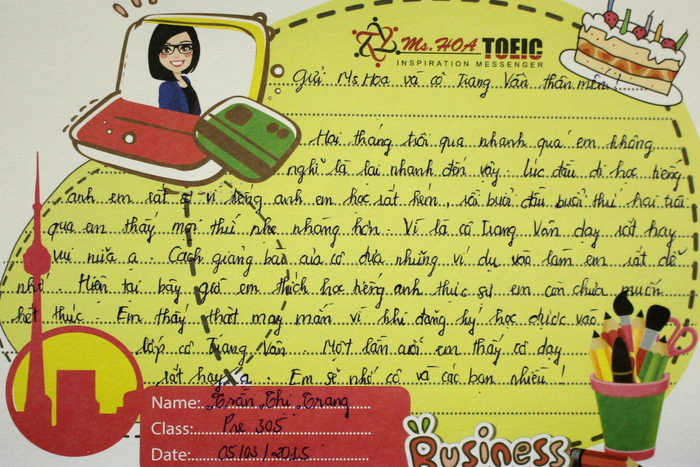 Ms. HOA TOEIC
INSPIRATION MESSENGER
Gửi Ms Hoa và cô Trang Vân thân mến
Hai tháng trôi qua nhanh quá em không
nghĩ là lại nhanh đến vậy. Lúc đầu đi học tiếng
anh em rất sợ vì tiếng anh em học rất kém, rồi buổi đầu buổi thứ hai trôi
qua em thấy mọi thứ nhẹ nhàng hơn. Vì là cô Trang Vân dạy rất hay
vui nữa ạ. Cách giảng bài của cô đưa những ví dụ vào làm em rất dễ
nhớ. Hiện tại bây giờ em thích học tiếng anh thực sự em còn chưa muốn
kết thúc. Em thấy thật may mắn vì khi đăng ký học được vào
lớp cô Trang Vân. Một lần cuối em thấy cô dạy
rất hay ạ. Em sẽ nhớ cô và các bạn nhiều!
Name: Trần Thị Trang
Class: Pre 305
Date: 05/03/2015
BUSINESS